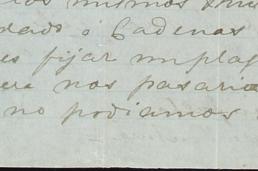 los mismos
dado á Cadenas
es fijar un pla
era nos pasaria
no podiamos